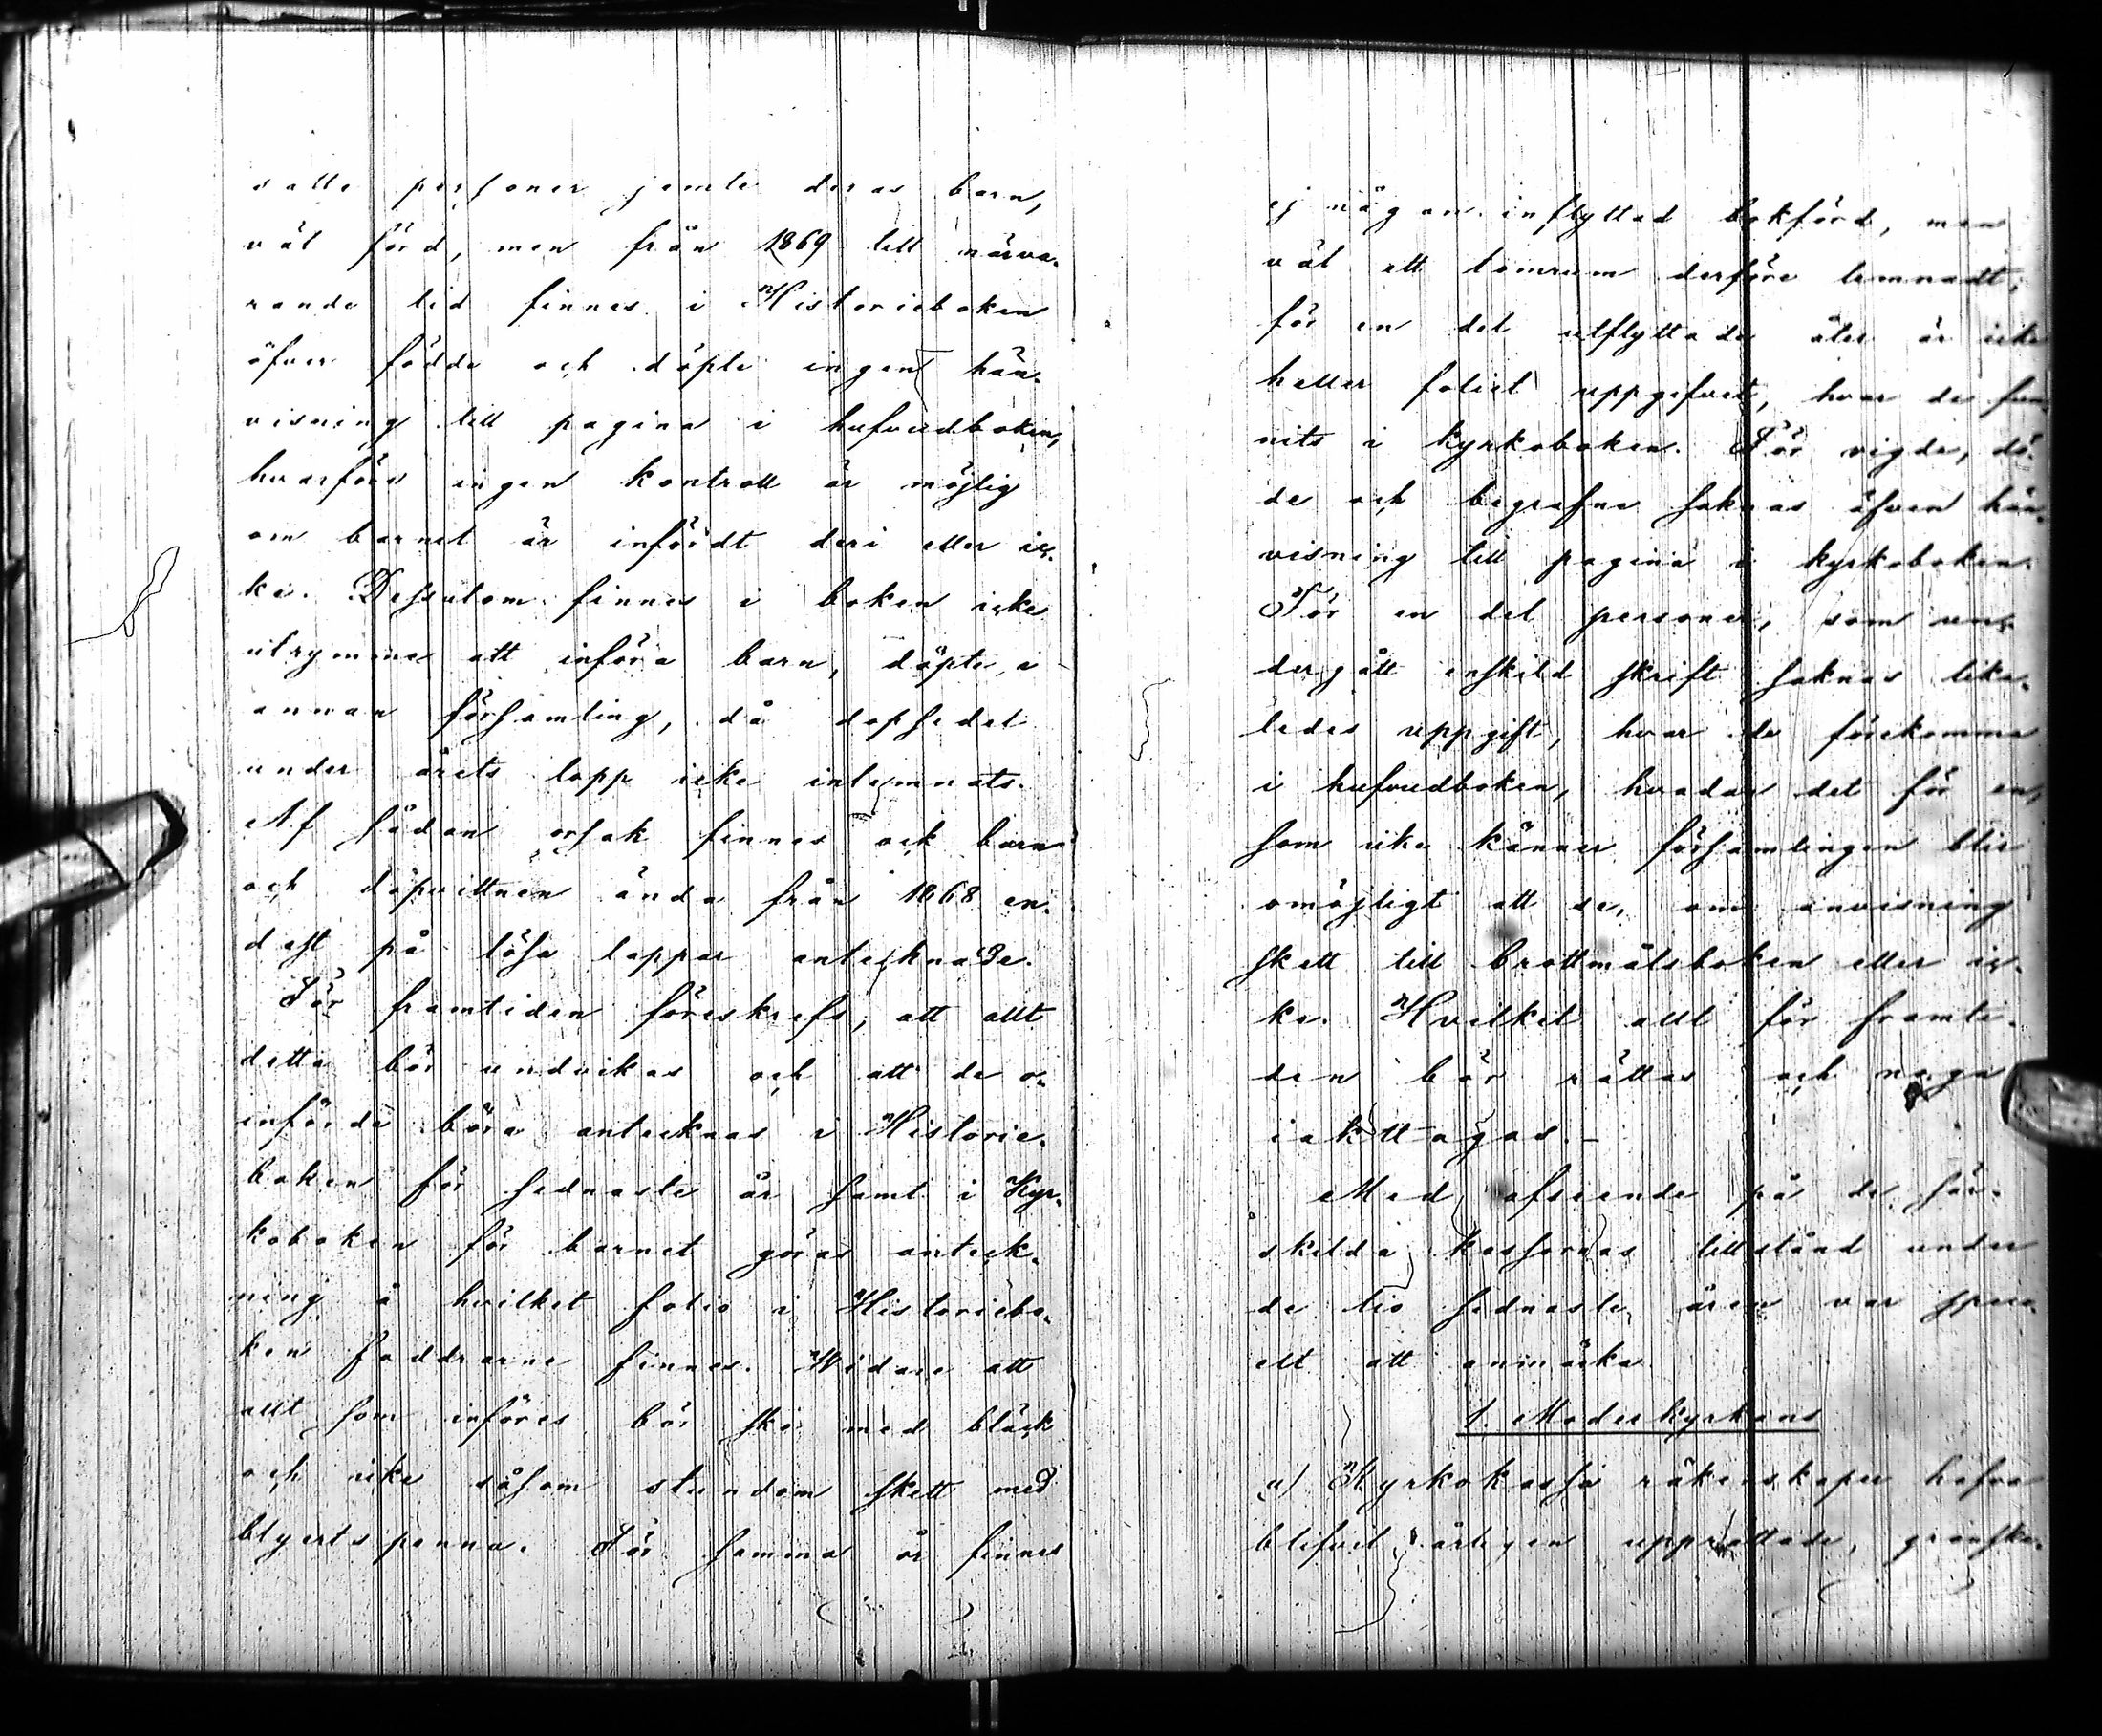 satte personer jemte deras barn,
väl förd, men från 1869 till närva-
rande tid finnes i Historieboken
öfver födde och döpte ingen hän-
visning till pagina i hufvudboken,
hvarföre ingen kontroll är möjlig
om barnet är infördt deri eller ic-
ke. Dessutom finnes i boken icke
utrymme att införa barn, döpte i
annan församling, då dopsedel
under årets lopp icke inlemnats.
Af sådan orsak finnes ock barn
och dopvittnen ända från 1868 en-
dast på lösa lappar antecknade.
För framtiden föreskrefs, att allt
detta bör undvikas och att de o-
införde böra antecknas i Historie-
boken för sednaste år samt i Kyr-
koboken för barnet göras anteck-
ning å hvilket folio i Historiebo-
ken faddrarne finnes. Widare att
allt som införes bör ske med bläck
och icke såsom stundom skett med
blyertspenna. För samma år finnes
ej någon inflyttad bokförd, men
väl ett tomrum derföre lemnadt;
för en del utflyttade åter är icke
heller foliet uppgifvet, hvar de fun-
nits i kyrkoboken. För vigde, dö-
de och begrafne saknas äfven hän-
visning till pagina i kyrkoboken.
För en del personer, som un-
dergått enskild skrift saknas lika-
ledes uppgift, hvar de förekomma
i hufvudboken, hvadan det för en,
som icke känner församlingen blir
omöjligt att se, om anvisning
skett till brottmålsboken eller ic-
ke. Hvilket allt för framti-
den bör rättas och noga
iakttagas.-
Med afseende på de sär-
skilda kassornas tillstånd under
de tio sednaste åren var speci-
elt att anmärka
1. Moderkyrkans
a) Kyrkokassa räkenskaper hafva
blifvit årligen upprättade, granska-